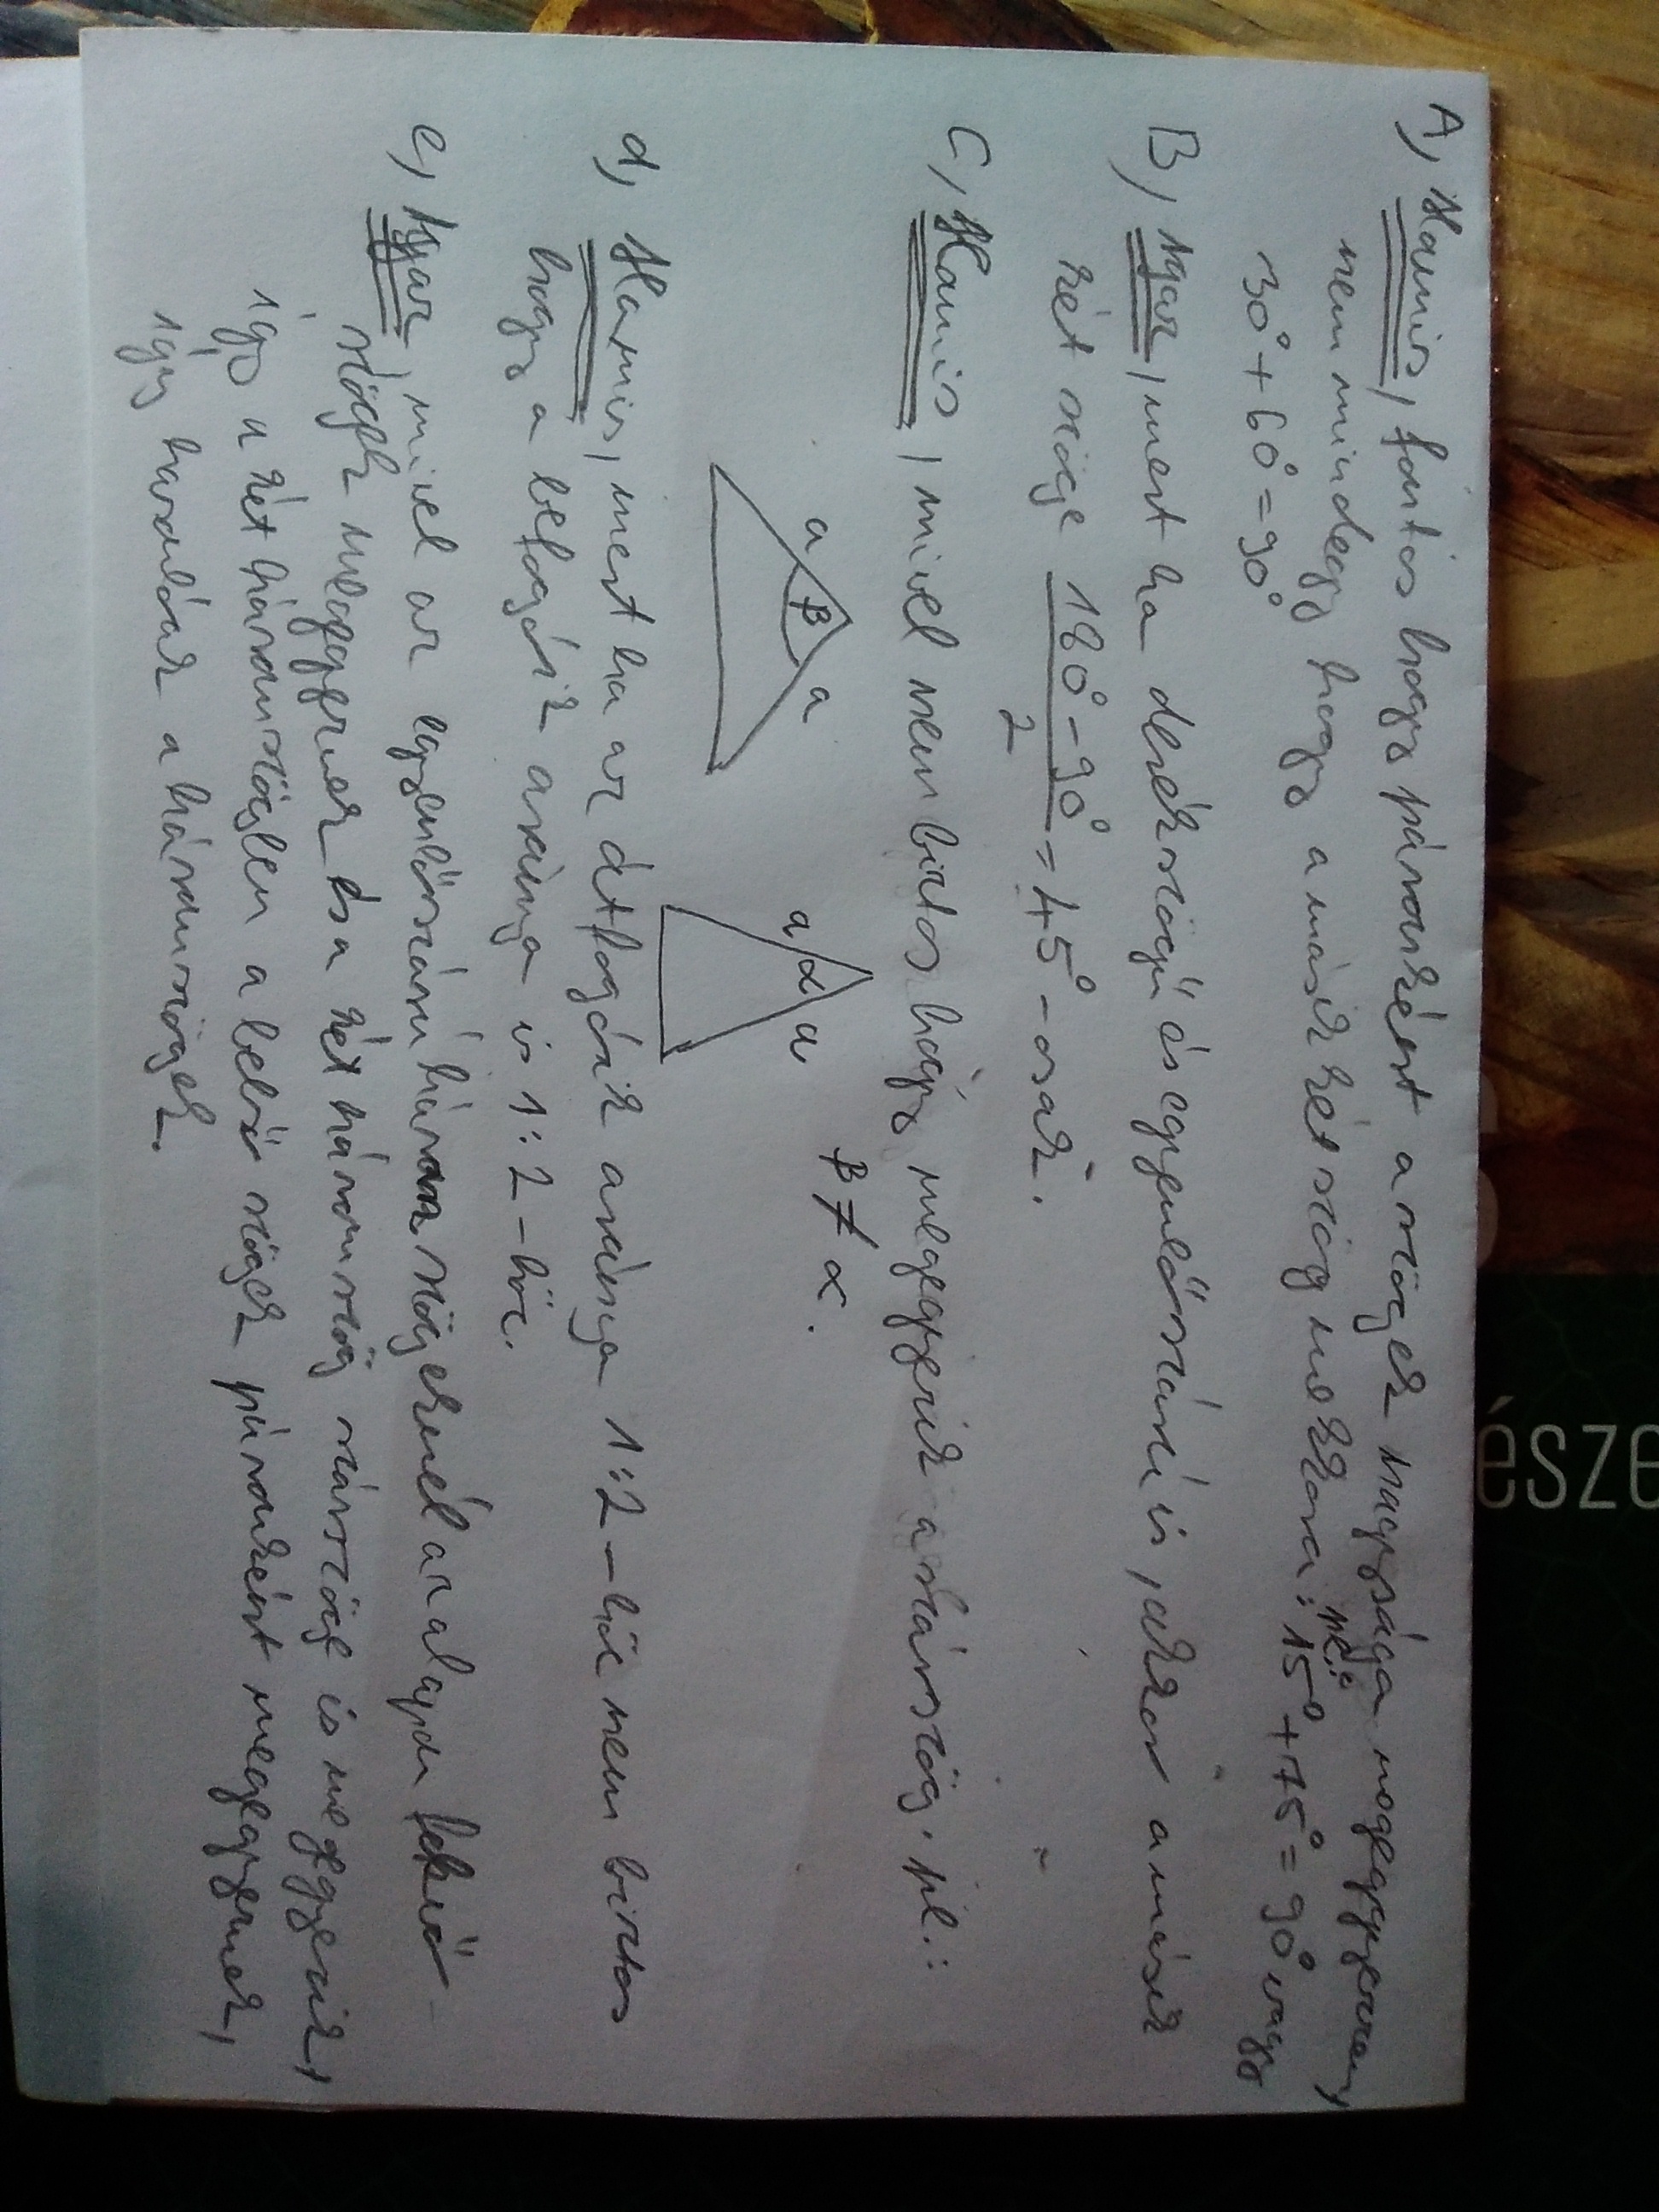 A, Hamis, fontos hogy páronként a szögek nagysága megegyezzen,
nem mindegy hogy a másik két szög mekkora: pl.: 15° + 75° = 90° vagy
30° + 60° = 90°
B, Igaz, mert ha derékszögű és egyenlőszárú is, akkor a másik
két szöge 180° - 90° / 2 = 45° - osak.
C, Hamis, mivel nem biztos hogy megegyezik a szárszög. pl.:
a β a
a α a
β ≠ α.
d, Hamis, mert ha az átfogóik aránya 1:2 - höz nem biztos
hogy a befogóik aránya is 1:2 - höz.
e, Igaz, mivel az egyenlőszárú háromszögeknél az alapon fekvő
szögek megegyeznek és a két háromszög szárszöge is megegyezik,
így a két háromszögben a belső szögek páronként megegyeznek,
így hasonlóak a háromszögek.
észe